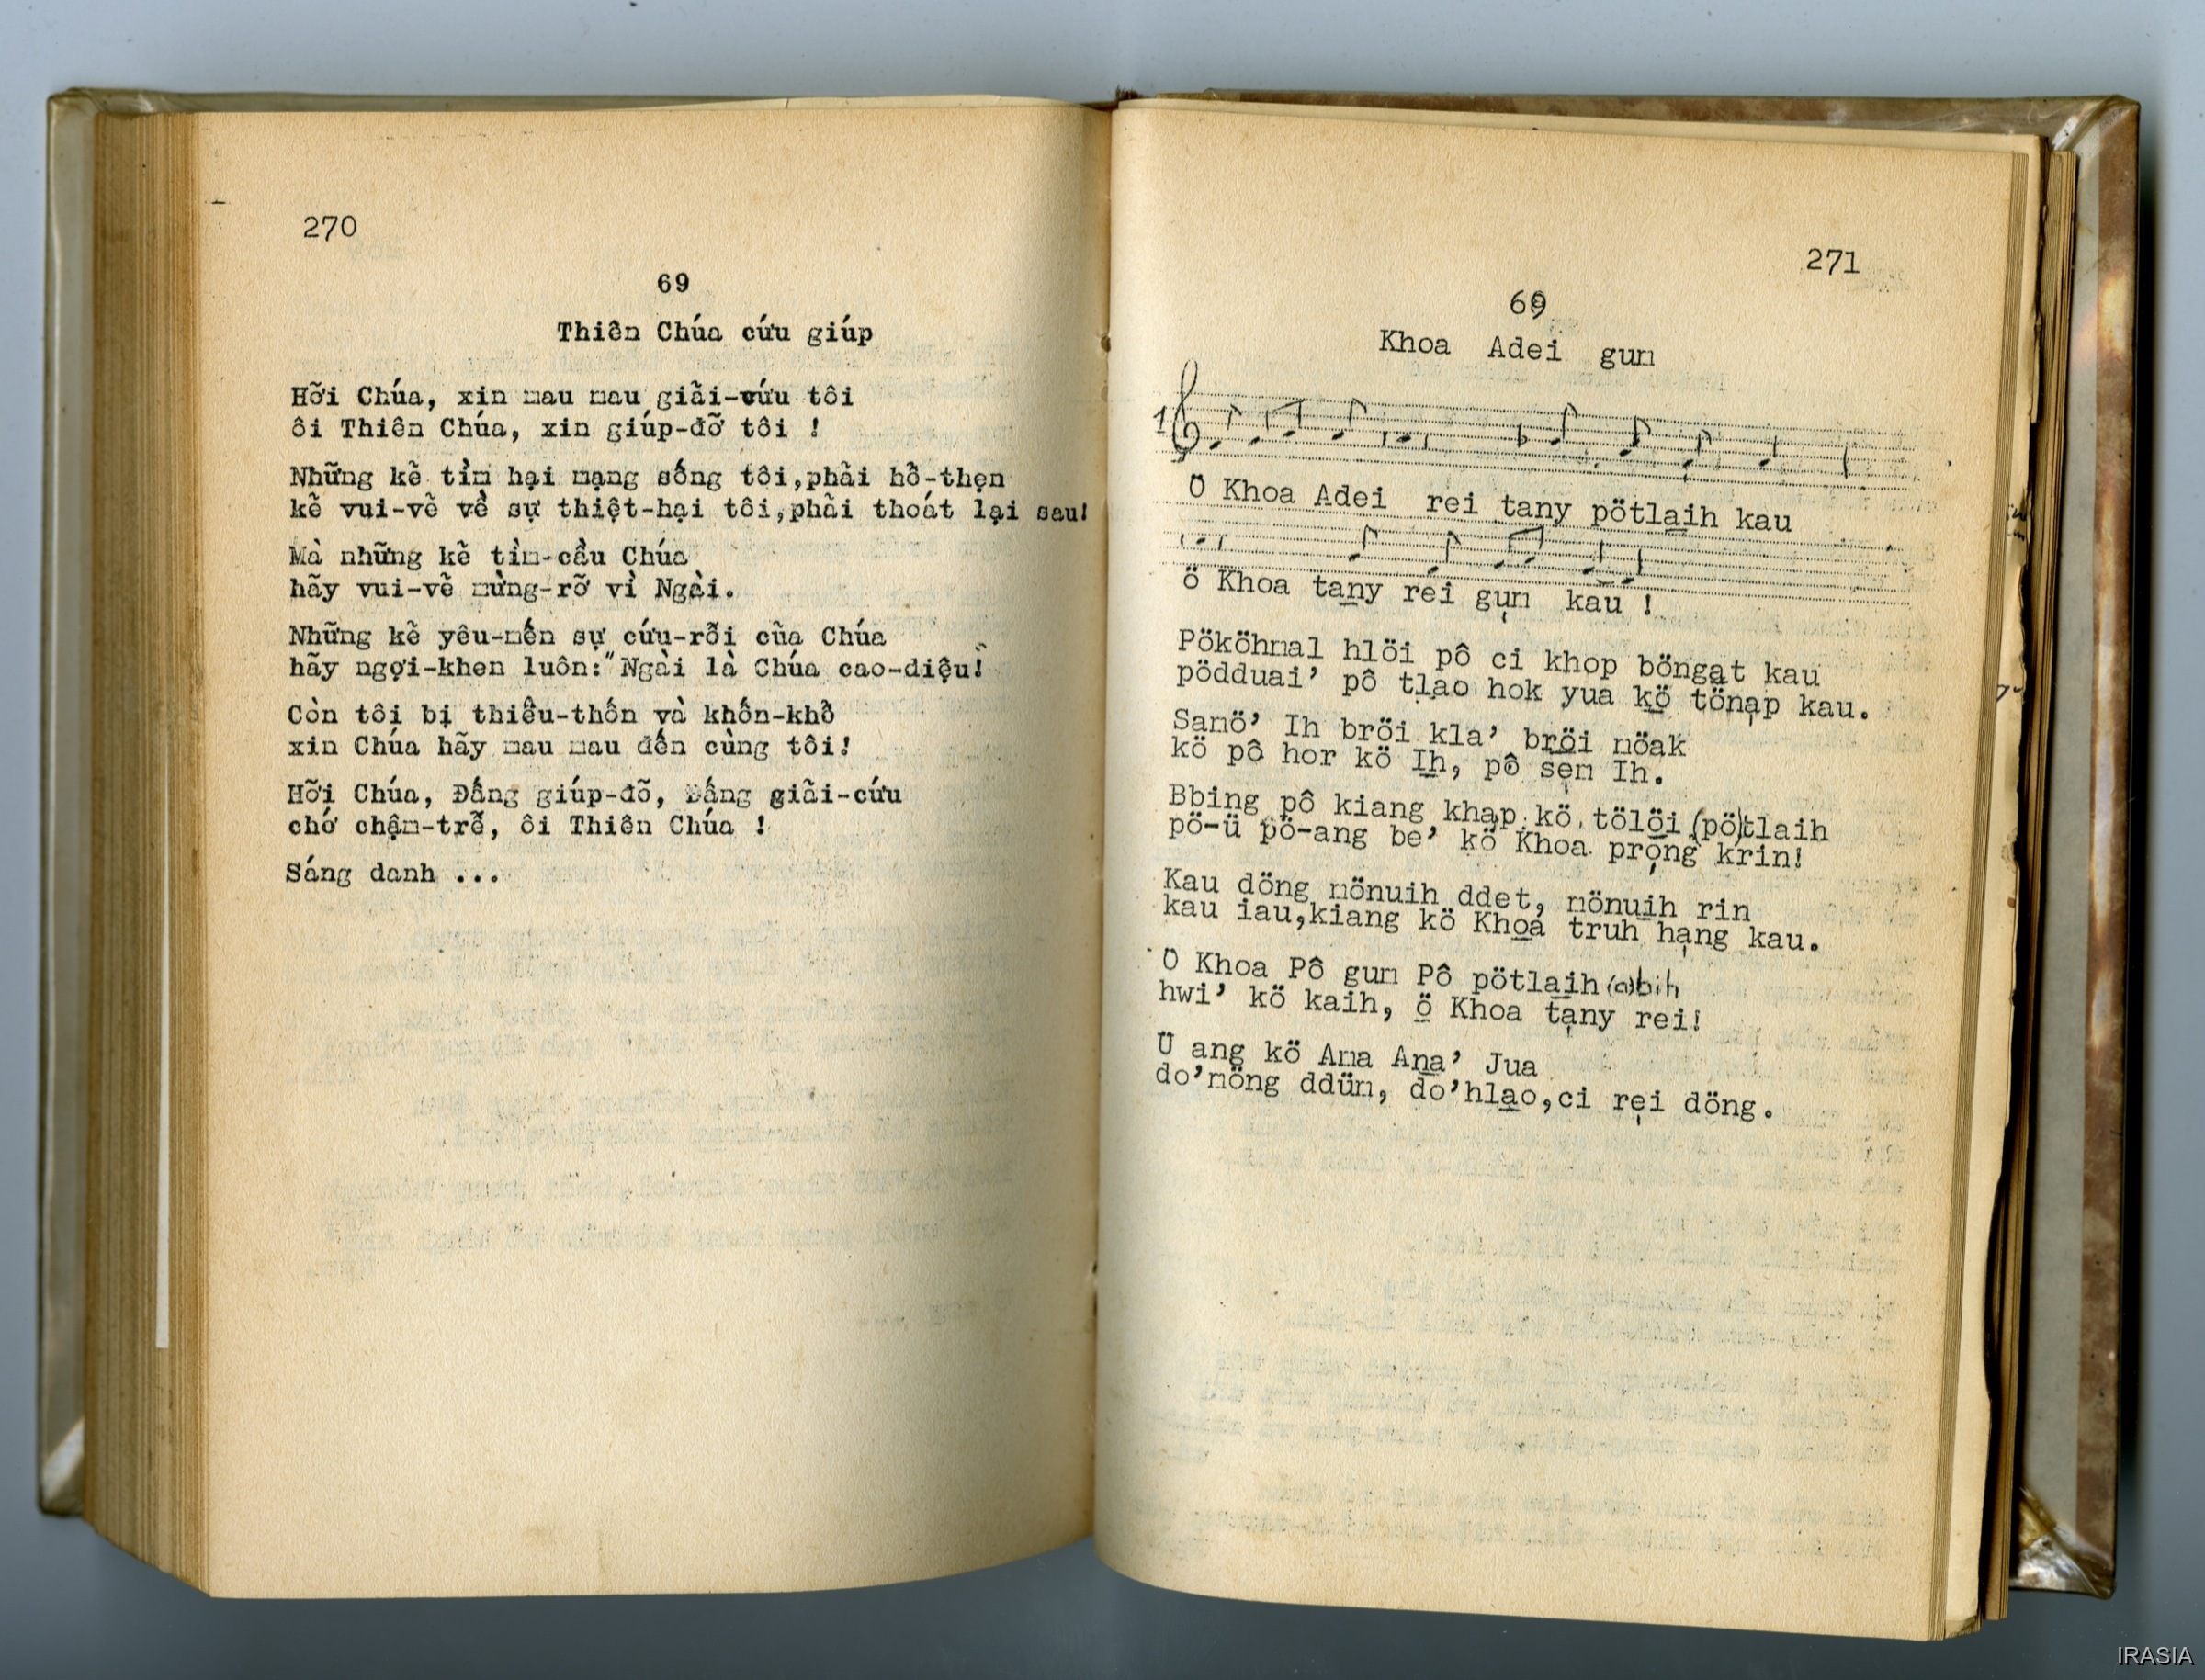 270
69
Thiên Chúa cứu giúp
Hỡi Chúa, xin mau mau giải-vứu tôi
ôi Thiên Chúa, xin giúp-đỡ tôi !
Những kẻ tìm hại mạng sống tôi,phải hổ-thẹn
kẻ vui-vẻ về sự thiệt-hại tôi,phải thoát lại sau!
Mà những kẻ tìm-cầu Chúa
hãy vui-vẻ mừng-rỡ vì Ngài.
Những kẻ yêu-mến sự cứu-rỗi của Chúa
hãy ngợi-khen luôn:"Ngài là Chúa cao-diệu!
Còn tôi bị thiếu-thốn và khốn-khổ
xin Chúa hãy mau mau đến cùng tôi!
Hỡi Chúa, Đấng giúp-đỡ, Đấng giải-cứu
chớ chậm-trễ, ôi Thiên Chúa !
Sáng danh ...
271
69
Khoa Adei gum
1
Ö Khoa Adei rei tany pötlaih kau
ö Khoa tany rei gum kau !
Pököhmal hlöi pô ci khop böngat kau
pödduai' pô tlao hok yua kö tönap kau.
Samö' Ih bröi kla' bröi möak
kö pô hor kö Ih, pô sem Ih.
Bbing pô kiang khap kö tölöi (pö)tlaih
pö-ü pö-ang be' kö Khoa prong krin!
Kau döng mönuih ddet, mönuih rin
kau iau,kiang kö Khoa truh hang kau.
Ö Khoa Pô gum Pô pötlaih (a)bih
hwi' kö kaih, ö Khoa tany rei!
Ü ang kö Ama Ana' Jua
do'möng ddüm, do'hlao,ci rei döng.
IRASIA